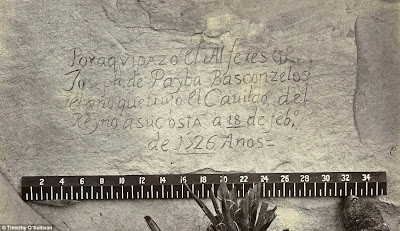 Por aqui pazo el Alferes Dn
Joseph de Payba Basconzelos
el año que trujo el Cavildo del
Reyno a su costa a 18 de febo
de 1726 Años =
2 4 6 8 10 12 14 16 18 20 22 24 26 28 30 32 34
© Timothy O'Sullivan